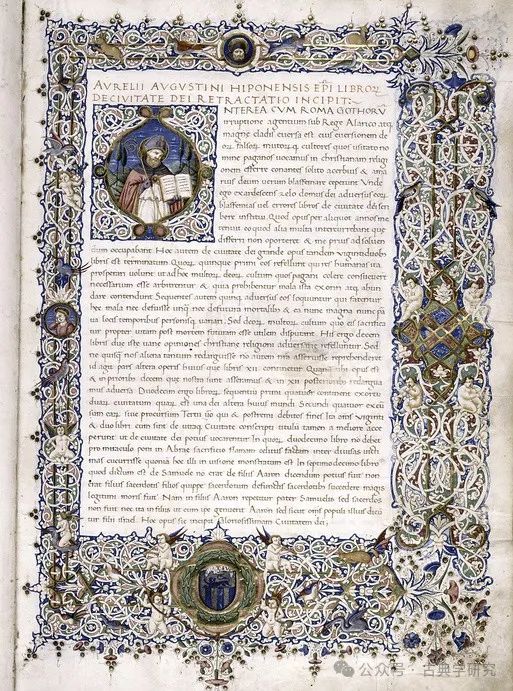 AVRELII AVGVSTINI HIPONENSIS EPI LIBROR
DE CIVITATE DEI RETRACTATIO INCIPIT:
NTEREA CVM ROMA GOTHORV
irruptione agentium sub Rege Alarico atq
magne cladis euersa est eius euersionem de
or. falsor. multorq. cultores quos usitato no
mine paganos uocamus in christianam religi
onem efferre conantes solito acerbius & ama
rius deum uerum blasfemare ceperunt Vnde
ego exardescens zelo domus dei aduersus eor.
blasfemias uel errores libros de ciuitate dei scri
bere institui. Quod opus per aliquot annos me
tenuit eo quod alia multa intercurrebant que
differri non oporteret & me prius ad soluen
dum occupabant. Hoc autem de ciuitate dei grande opus tandem uigintiduob
libris est terminatum Quor. quinque primi eos refellunt qui res humanas ita
prosperari uolunt ut ad hoc multor. deor. cultum quos pagani colere consueuer
necessarium esse arbitrentur & quia prohibentur mala ista exoriri atq. abun
dare contendunt Sequentes autem quinq. aduersus eos loquuntur qui fatentur
hec mala nec defuisse unq. nec defutura mortalib & ea nunc magna nunc pa
ua locis temporibus personisq. uariari. Sed deor. multor. cultum quo eis sacrifica
tur propter uitam post mortem futuram esse utilem disputant. His ergo decem
libris due iste uane opiniones christiane religioni aduersarie refelluntur. Sed
ne quisq. nos aliena tantum redarguisse non autem nra asseruisse reprehenderet
id agit pars altera operis huius que libris xii. continetur Quamq. ubi opus est
& in prioribus decem que nostra sunt asseramus & in xii posterioribus redargua
mus aduersa. Duodecim ergo libror. sequentium primi quatuor continent exortu
duar. ciuitatum quar. est una dei altera huius mundi. Secundi quatuor excu
sum ear. siue procursum Tertii uo qui & postremi debitos fines Ita oms Viginti
& duo libri cum sint de utraq. Ciuitate conscripti titulu tamen a meliore acce
perunt ut de ciuitate dei potius uocarentur In quor. duodecimo libro no debet
pro miraculo poni in Abrae sacrificio flamam celitus factam inter diuisas uicti
mas cucurrisse quoniam hoc illi in uisione monstratum est In septimodecimo libro
quod dictum est de Samuele no erat de filiis Aaron dicendum potius fuit non
erat filius sacerdotis filios quippe sacerdotum defunctis sacerdotib succedere magis
legitimi moris fuit Nam in filiis Aaron reperitur pater Samuelis sed sacerdos
non fuit nec ita in filiis ut eum ipe genuerit Aaron sed sicut oms populi illius dicu
tur filii israel. Hoc opus sic incipit Gloriosissimam Ciuitatem dei;
公众号 · 古典学研究